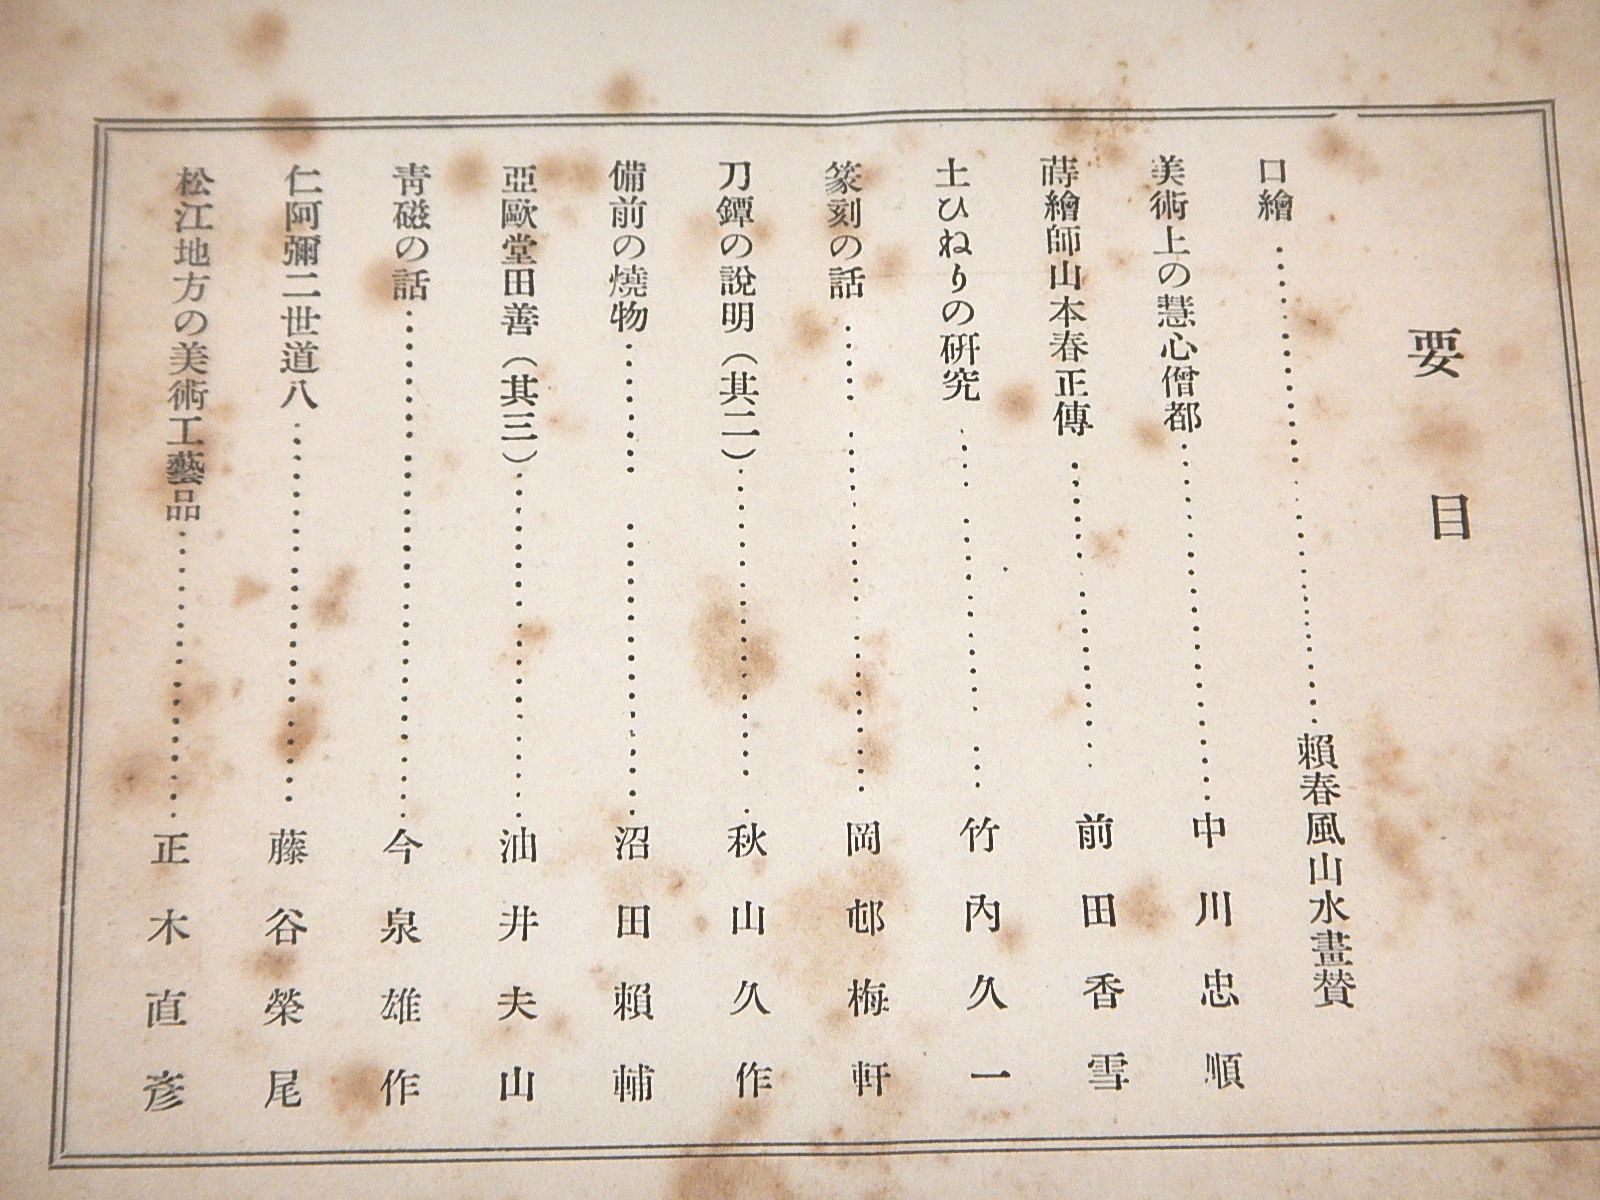 要目
口繪……………………賴春風山水畫贊
美術上の慧心僧都……………………中川忠順
蒔繪師山本春正傳……………………前田香雪
土ひねりの研究……………………竹內久一
篆刻の話……………………岡邨梅軒
刀鐔の說明（其二）……………………秋山久作
備前の燒物……………………沼田賴輔
亞歐堂田善（其三）……………………油井夫山
靑磁の話……………………今泉雄作
仁阿彌二世道八……………………藤谷榮尾
松江地方の美術工藝品……………………正木直彥